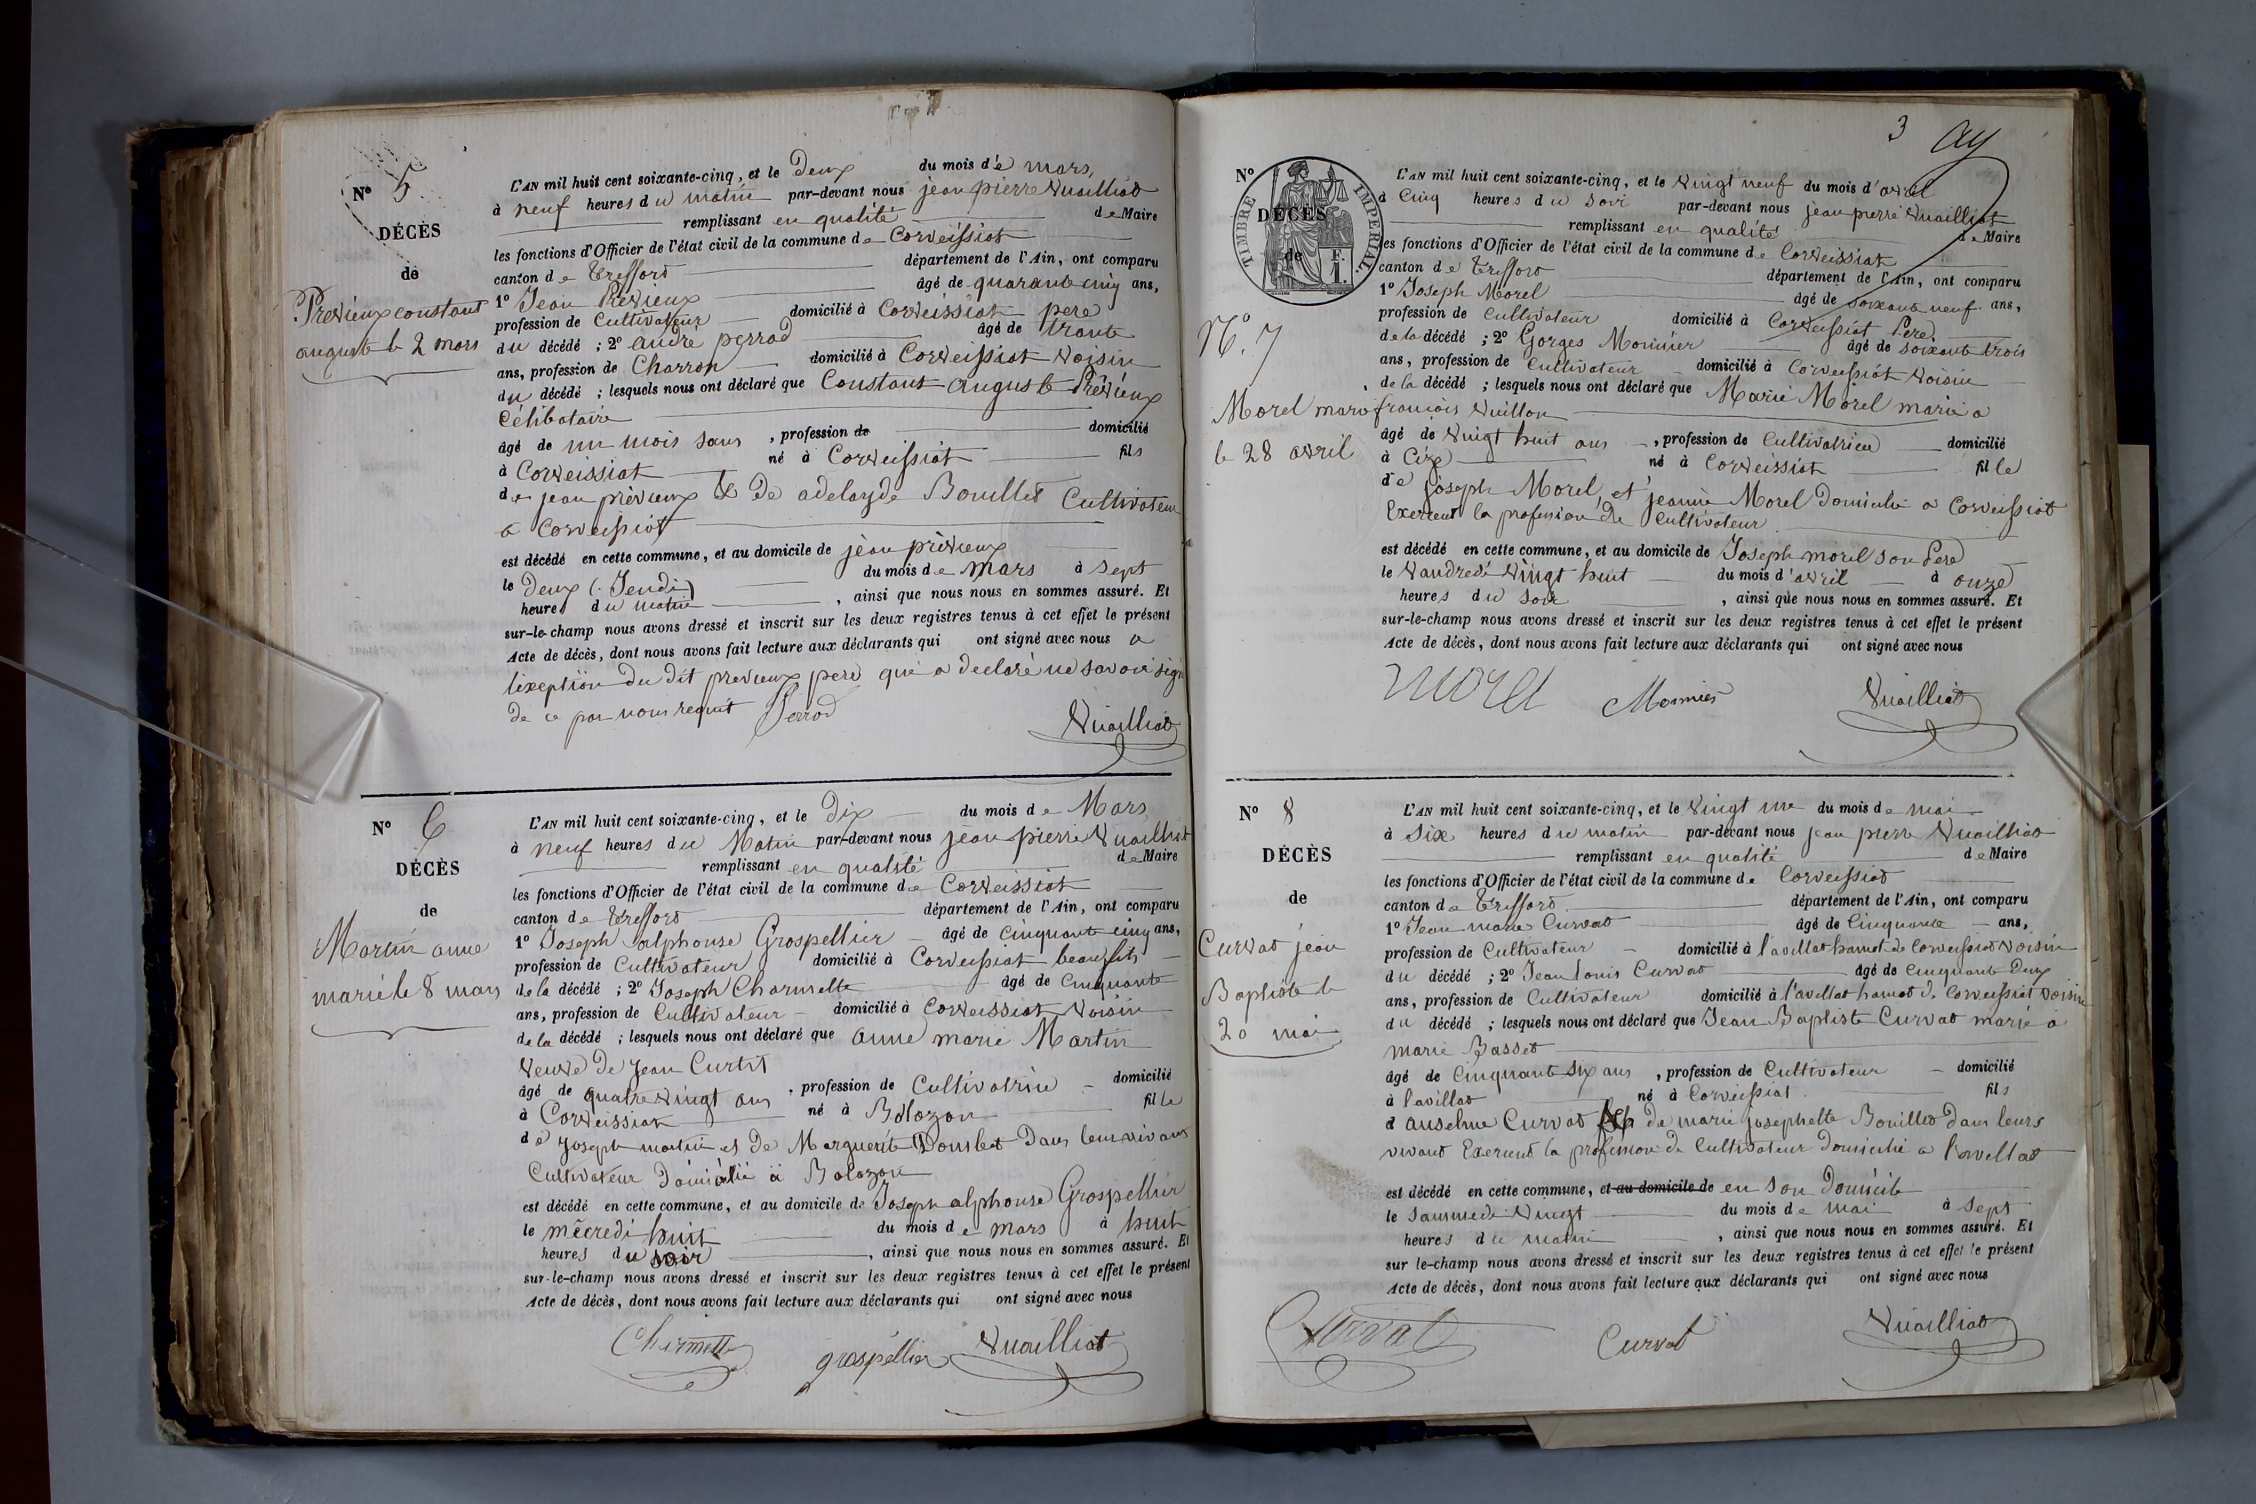 Nº 5
DÉCÈS
de
Previeux constant
auguste le 2 mars
L'AN mil huit cent soixante-cinq, et le Deux du mois de mars,
à neuf heures du matin par-devant nous jean pierre Vuailliat
remplissant en qualité de Maire
les fonctions d'Officier de l'état civil de la commune de Corveissiat
canton de Treffort département de l'Ain, ont comparu
1º Jean Prévieux âgé de quarante cinq ans,
profession de Cultivateur domicilié à Corveissiat pere
du décédé ; 2º andré perrod âgé de trante
ans, profession de Charron domicilié à Corveissiat voisin
du décédé ; lesquels nous ont déclaré que Constant auguste Prévieux
Célibataire
âgé de un mois sans , profession de domicilié
à Corveissiat né à Corveissiat fils
de jean prévieux & De adelayde Bouillet Cultivateur
a Corveissiat
est décédé en cette commune, et au domicile de jean prévieux
le Deux (Jeudi) du mois de mars à sept
heures du matin , ainsi que nous nous en sommes assuré. Et
sur-le-champ nous avons dressé et inscrit sur les deux registres tenus à cet effet le présent
Acte de décès, dont nous avons fait lecture aux déclarants qui ont signé avec nous a
lexeption du dit previeux pere qui a declaré ne savoir sign
de ce par nous requit Perrod
Vuailliat
Nº 6
DÉCÈS
de
Martin anne
marie le 8 mars
L'AN mil huit cent soixante-cinq, et le Dix du mois de Mars
à neuf heures du Matin par-devant nous jean pierre Vuailliat
remplissant en qualité de Maire
les fonctions d'Officier de l'état civil de la commune de Corveissiat
canton de Treffort département de l'Ain, ont comparu
1º Joseph alphonse Grospellier âgé de cinquante cinq ans,
profession de Cultivateur domicilié à Corveissiat beaufils
de la décédé ; 2º Joseph Charmette âgé de Cinquante
ans, profession de Cultivateur domicilié à Corveissiat Voisin
de la décédé ; lesquels nous ont déclaré que anne marie Martin
veuve De jean Curtit
âgé de quatre vingt ans , profession de Cultivatrice domicilié
à Corveissiat né à Bolozon fille
de joseph martin et De Marguerite Doublet Dans leur vivant
Cultivateur Domicilié à Bolozon
est décédé en cette commune, et au domicile de Joseph alphonse Grospellier
le mêcredi huit du mois de mars à huit
heures du soir , ainsi que nous nous en sommes assuré. Et
sur-le-champ nous avons dressé et inscrit sur les deux registres tenus à cet effet le présent
Acte de décès, dont nous avons fait lecture aux déclarants qui ont signé avec nous
Charmette grospellier Vuailliat
3 ay
Nº
TIMBRE IMPÉRIAL.
F. 1.
DÉCÈS
de
Nº. 7
Morel marie
le 28 avril
L'AN mil huit cent soixante-cinq, et le vingt neuf du mois d'avril
à Cinq heures du soir par-devant nous jean pierre Vuailliat
remplissant en qualité de Maire
les fonctions d'Officier de l'état civil de la commune de Corveissiat
canton de Treffort département de l'Ain, ont comparu
1º Joseph Morel âgé de soixante neuf ans,
profession de Cultivateur domicilié à Corveissiat Pere
de la décédé ; 2º Gorges Monnier âgé de soixante trois
ans, profession de Cultivateur domicilié à Corveissiat voisin
de la décédé ; lesquels nous ont déclaré que Marie Morel marié a
françois Vuillon
âgé de vingt huit ans , profession de Cultivatrice domicilié
à Cize né à Corveissiat fille
de joseph Morel, et jeanne Morel Domicilié a Corveissiat
Exercent la profession De Cultivateur
est décédé en cette commune, et au domicile de Joseph morel son Pere
le vandredi vingt huit du mois d'avril à onze
heures du soir , ainsi que nous nous en sommes assuré. Et
sur-le-champ nous avons dressé et inscrit sur les deux registres tenus à cet effet le présent
Acte de décès, dont nous avons fait lecture aux déclarants qui ont signé avec nous
morel Monnier Vuailliat
Nº 8
DÉCÈS
de
Curvat jean
Baptiste le
20 mai
L'AN mil huit cent soixante-cinq, et le vingt une du mois de mai
à six heures du matin par-devant nous jean pierre Vuailliat
remplissant en qualité de Maire
les fonctions d'Officier de l'état civil de la commune de Corveissiat
canton de Treffort département de l'Ain, ont comparu
1º Jean marie Curvat âgé de Cinquante ans,
profession de Cultivateur domicilié à l'avellat hamot de Corveissiat voisin
du décédé ; 2º Jean Louis Curvat âgé de Cinquante Deux
ans, profession de Cultivateur domicilié à l'avellat hamot de Corveissiat voisin
du décédé ; lesquels nous ont déclaré que Jean Baptiste Curvat marié à
marie Basset
âgé de Cinquante six ans , profession de Cultivateur domicilié
à l'avellat né à Corveissiat fils
d anselme Curvat de marie josephette Bouillet dans leurs
vivant Exercent la profession de Cultivateur Domicilié a l'avellat
est décédé en cette commune, et au domicile de en son Domicile
le sammedi vingt du mois de mai à sept
heures du matin , ainsi que nous nous en sommes assuré. Et
sur le-champ nous avons dressé et inscrit sur les deux registres tenus à cet effet le présent
Acte de décès, dont nous avons fait lecture aux déclarants qui ont signé avec nous
Curvat Curvat Vuailliat